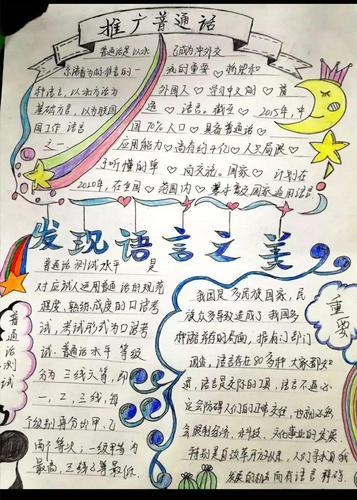 推广普通话
普通话是以北
京语音为标准音的一
种语言，以北方话为
基础方言，以为联合
国工作语言
之一
已成为中外文
流的重要
外国人
学习中文的
首
选
语言。截至
2015年，中
国70%人口
具备普通话
应用能力
尚有约4亿
人只局限
于听懂的单
向交流。国家
计划在
2020年，在全国
范围内
国家通用语言
发现语言之美
普通话测试
普通话测试水平
是
对应试人运用普通话的规范
程度、熟练成度的口语考
试，考试形式为口语考
试。普通话水平等级
分为三级六等，即
一，二，三级，每
个级别再分出甲乙
两个等次；一级甲等为
最高，三级乙等最低。
重要
我国是多民族国家，民
族众多导致造成了我国多
种语言的局面，据有门部门
调查，语言存在80多种大家都知
道，语言是交际的工具，语言不通必
定会防碍人们的正常交往，也制必
会限制经济、科技、文化事业的发展，
特别是直改革开放以后，人们